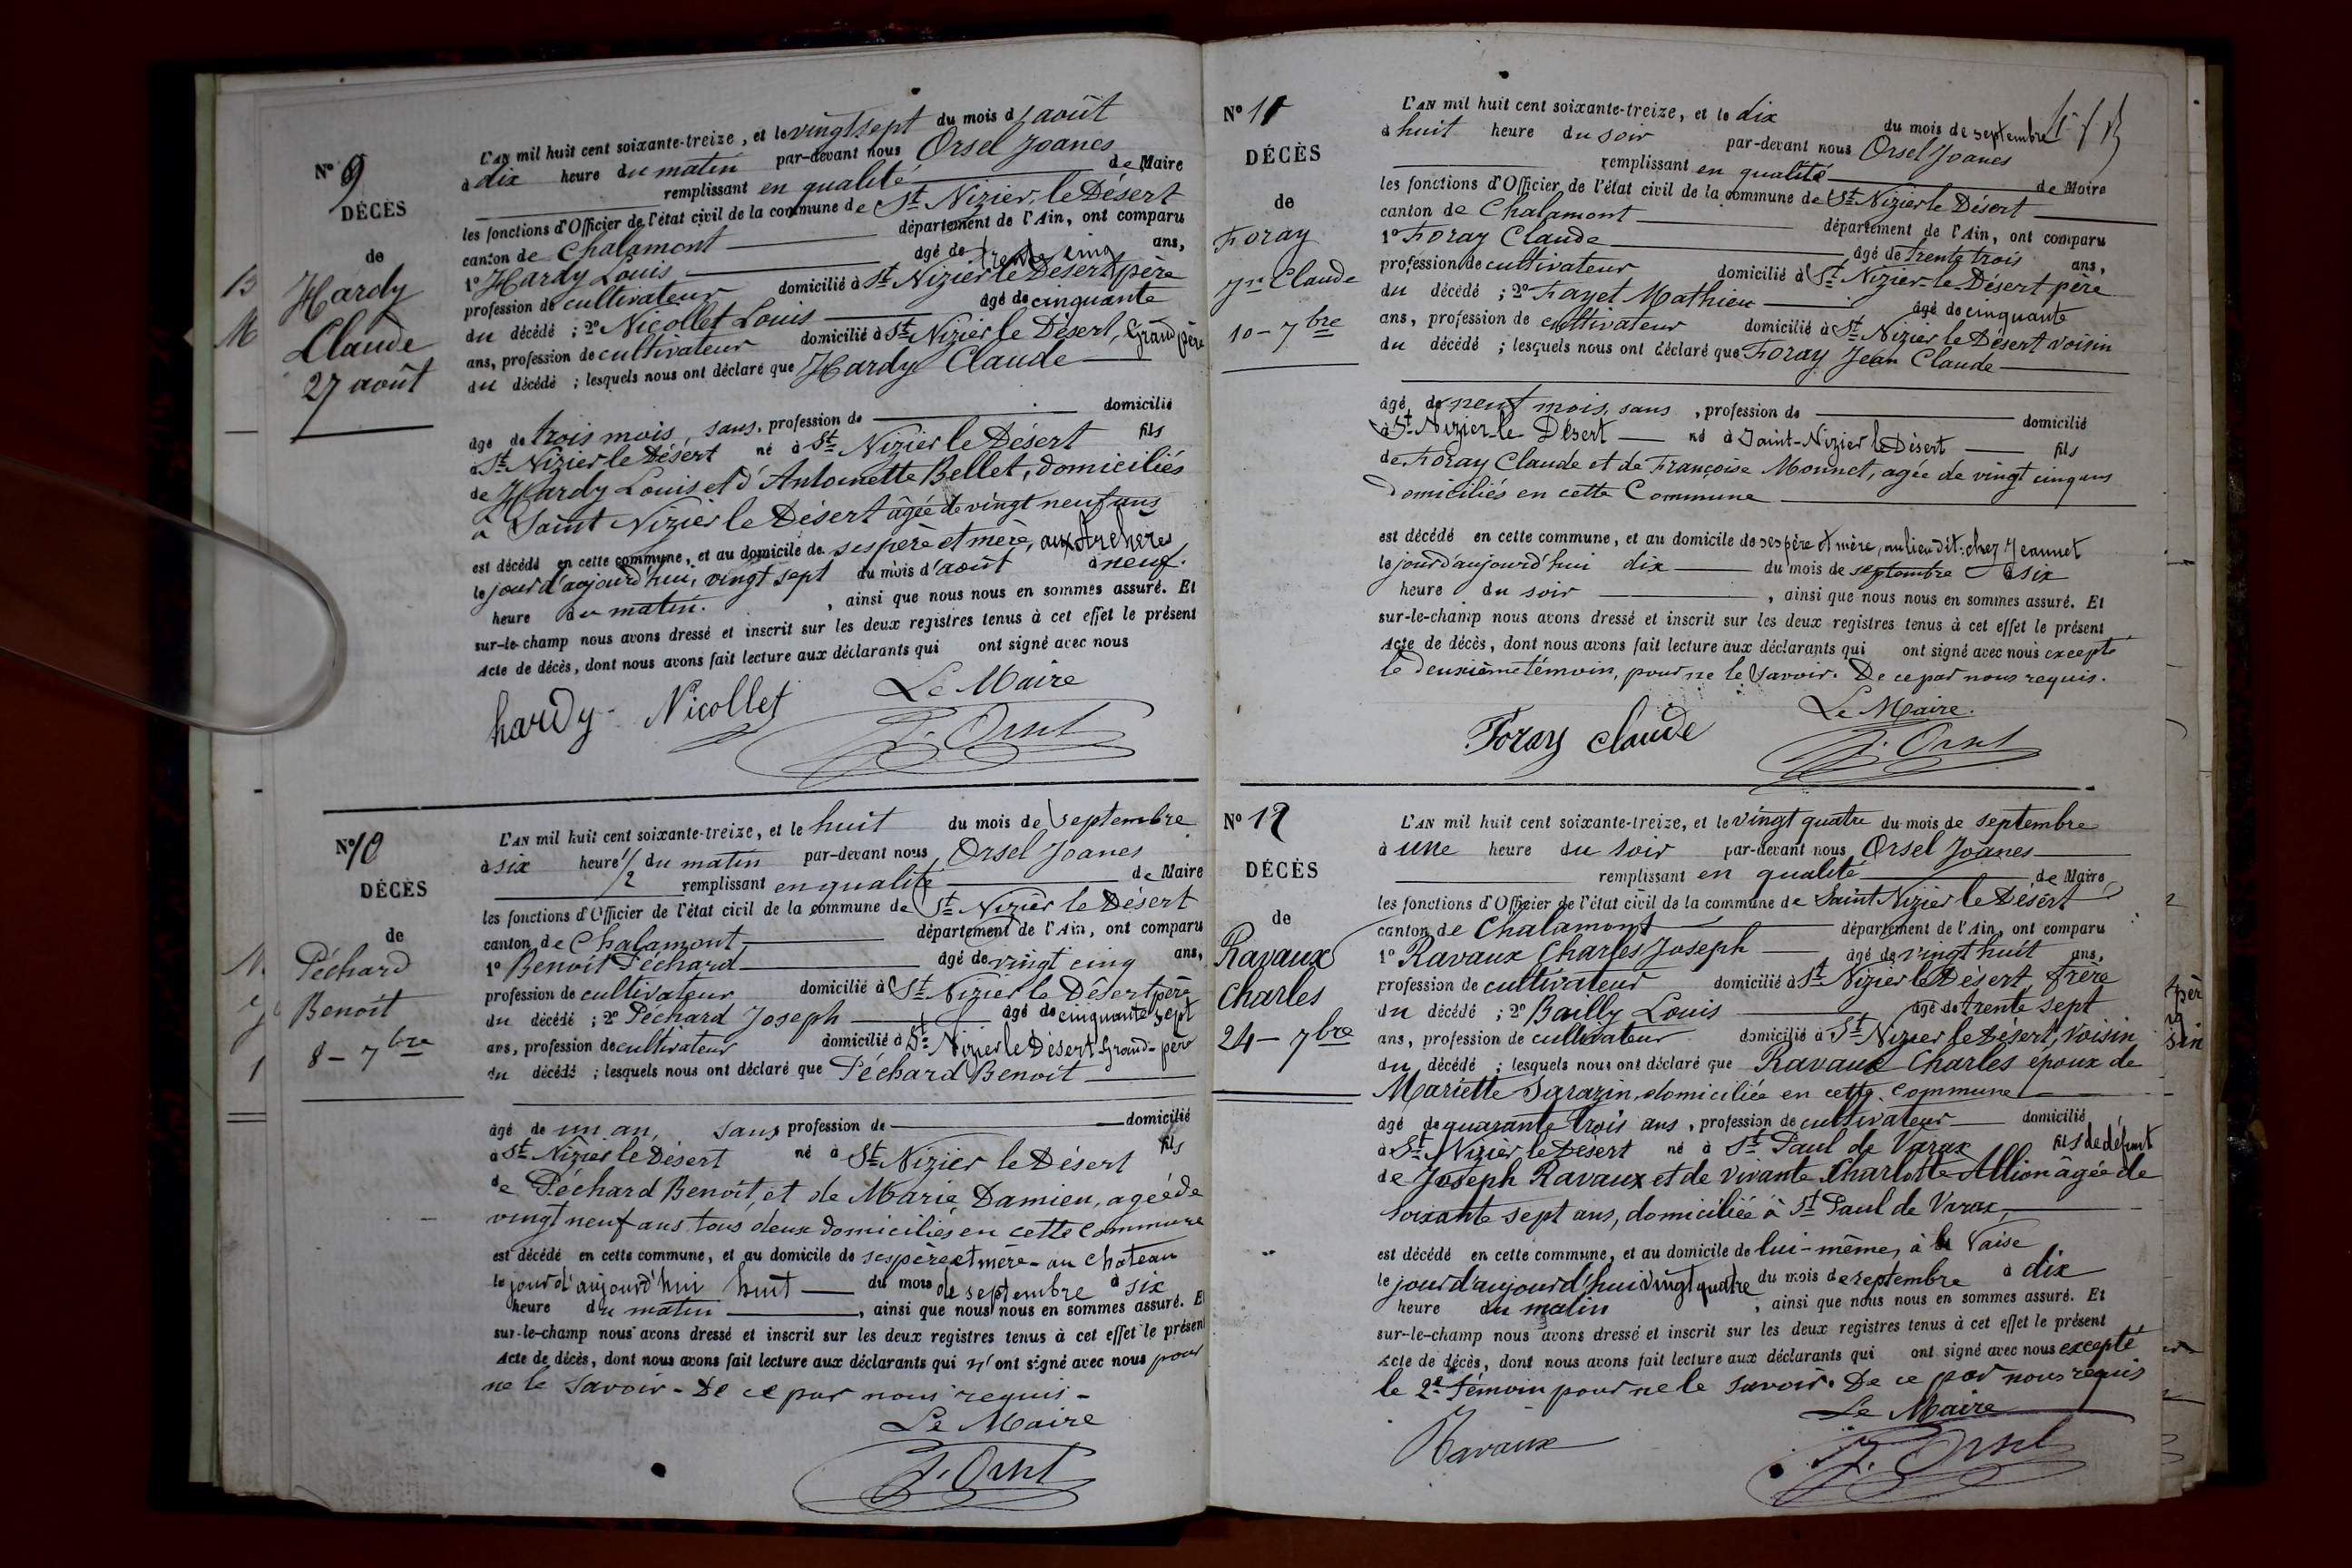 N° 9
DÉCÈS
de
Hardy
Claude
27 août
L'AN mil huit cent soixante-treize, et le vingt sept du mois d'août
à dix heure du matin par-devant nous Orsel Joanes
remplissant en qualité de Maire
les fonctions d'Officier de l'état civil de la commune de St Nizier le Désert
canton de Chalamont département de l'Ain, ont comparu
1° Hardy Louis âgé de trente cinq ans,
profession de cultivateur domicilié à St Nizier le Désert père
du décédé ; 2° Nicollet Louis âgé de cinquante
ans, profession de cultivateur domicilié à St Nizier le Désert, Grand père
du décédé ; lesquels nous ont déclaré que Hardy Claude
âgé de trois mois, sans, profession de domicilié
à St Nizier le Désert né à St Nizier le Désert fils
de Hardy Louis et d'Antoinette Bellet, domiciliés
à Saint Nizier le Désert âgée de vingt neuf ans
est décédé en cette commune, et au domicile de ses père et mère, aux Archères
le jour d'aujourd'hui, vingt sept du mois d'août à neuf
heure du matin. , ainsi que nous nous en sommes assuré. Et
sur-le-champ nous avons dressé et inscrit sur les deux registres tenus à cet effet le présent
Acte de décès, dont nous avons fait lecture aux déclarants qui ont signé avec nous
Le Maire
hardy Nicollet J. Orsel
N° 10
DÉCÈS
de
Péchard
Benoit
8 - 7bre
L'AN mil huit cent soixante-treize, et le huit du mois de septembre
à six heure 1/2 du matin par-devant nous Orsel Joanes
remplissant en qualité de Maire
les fonctions d'Officier de l'état civil de la commune de St Nizier le Désert
canton de Chalamont département de l'Ain, ont comparu
1° Benoit Péchard âgé de vingt cinq ans,
profession de cultivateur domicilié à St Nizier le Désert père
du décédé ; 2° Péchard Joseph âgé de cinquante sept
ans, profession de cultivateur domicilié à St Nizier le Désert Grand-père
du décédé ; lesquels nous ont déclaré que Péchard Benoit
âgé de un an, sans profession de domicilié
à St Nizier le Désert né à St Nizier le Désert fils
de Péchard Benoit, et de Marie Damien, agée de
vingt neuf ans tous deux domiciliés en cette Commune
est décédé en cette commune, et au domicile de ses père et mère - au Chateau
le jour d'aujourd'hui huit du mois de septembre à six
heure du matin , ainsi que nous nous en sommes assuré. E
sur-le-champ nous avons dressé et inscrit sur les deux registres tenus à cet effet le présent
Acte de décès, dont nous avons fait lecture aux déclarants qui n'ont signé avec nous pour
ne le savoir - De ce par nous requis -
Le Maire
J. Orsel
N° 11
DÉCÈS
de
Foray
Jn Claude
10 - 7bre
L'AN mil huit cent soixante-treize, et le dix du mois de septembre
à huit heure du soir par-devant nous Orsel Joanes
remplissant en qualité de Maire
les fonctions d'Officier de l'état civil de la commune de St Nizier le Désert
canton de Chalamont département de l'Ain, ont comparu
1° Foray Claude âgé de trente trois ans,
profession de cultivateur domicilié à St Nizier-le-Désert père
du décédé ; 2° Fayet Mathieu âgé de cinquante
ans, profession de cultivateur domicilié à St Nizier le Désert voisin
du décédé ; lesquels nous ont déclaré que Foray Jean Claude
âgé de neuf mois, sans , profession de domicilié
à St Nizier-le Désert né à Saint-Nizier le Désert fils
de Foray Claude et de Françoise Monnet, agée de vingt cinq ans
domiciliés en cette Commune
est décédé en cette commune, et au domicile de ses père et mère, au lieu dit: chez Jeannet
le jour d'aujourd'hui dix du mois de septembre à six
heure du soir , ainsi que nous nous en sommes assuré. Et
sur-le-champ nous avons dressé et inscrit sur les deux registres tenus à cet effet le présent
Acte de décès, dont nous avons fait lecture aux déclarants qui ont signé avec nous excepté
le deuxième témoin, pour ne le savoir. De ce par nous requis.
Le Maire.
Foray claude J. Orsel
N° 12
DÉCÈS
de
Ravaux
Charles
24 - 7bre
L'AN mil huit cent soixante-treize, et le vingt quatre du mois de septembre
à une heure du soir par-devant nous Orsel Joanes
remplissant en qualité de Maire
les fonctions d'Officier de l'état civil de la commune de Saint Nizier le Désert
canton de Chalamont département de l'Ain, ont comparu
1° Ravaux Charles Joseph âgé de vingt huit ans,
profession de cultivateur domicilié à St Nizier le Désert, frère
du décédé ; 2° Bailly Louis âgé de trente sept
ans, profession de cultivateur domicilié à St Nizier le Désert, voisin
du décédé ; lesquels nous ont déclaré que Ravaux Charles époux de
Mariette Sarazin, domiciliée en cette commune
âgé de quarante trois ans , profession de cultivateur domicilié
à St Nizier le Désert né à St Paul de Varax fils de défunt
de Joseph Ravaux et de vivante Charlotte Allion âgée de
soixante sept ans, domiciliée à St Paul de Varax,
est décédé en cette commune, et au domicile de lui-même, à la Vaise
le jour d'aujourd'hui vingt quatre du mois de septembre à dix
heure du matin , ainsi que nous nous en sommes assuré. Et
sur-le-champ nous avons dressé et inscrit sur les deux registres tenus à cet effet le présent
Acte de décès, dont nous avons fait lecture aux déclarants qui ont signé avec nous excepté
le 2e témoin pour ne le savoir. De ce par nous requis
Le Maire
Ravaux J. Orsel